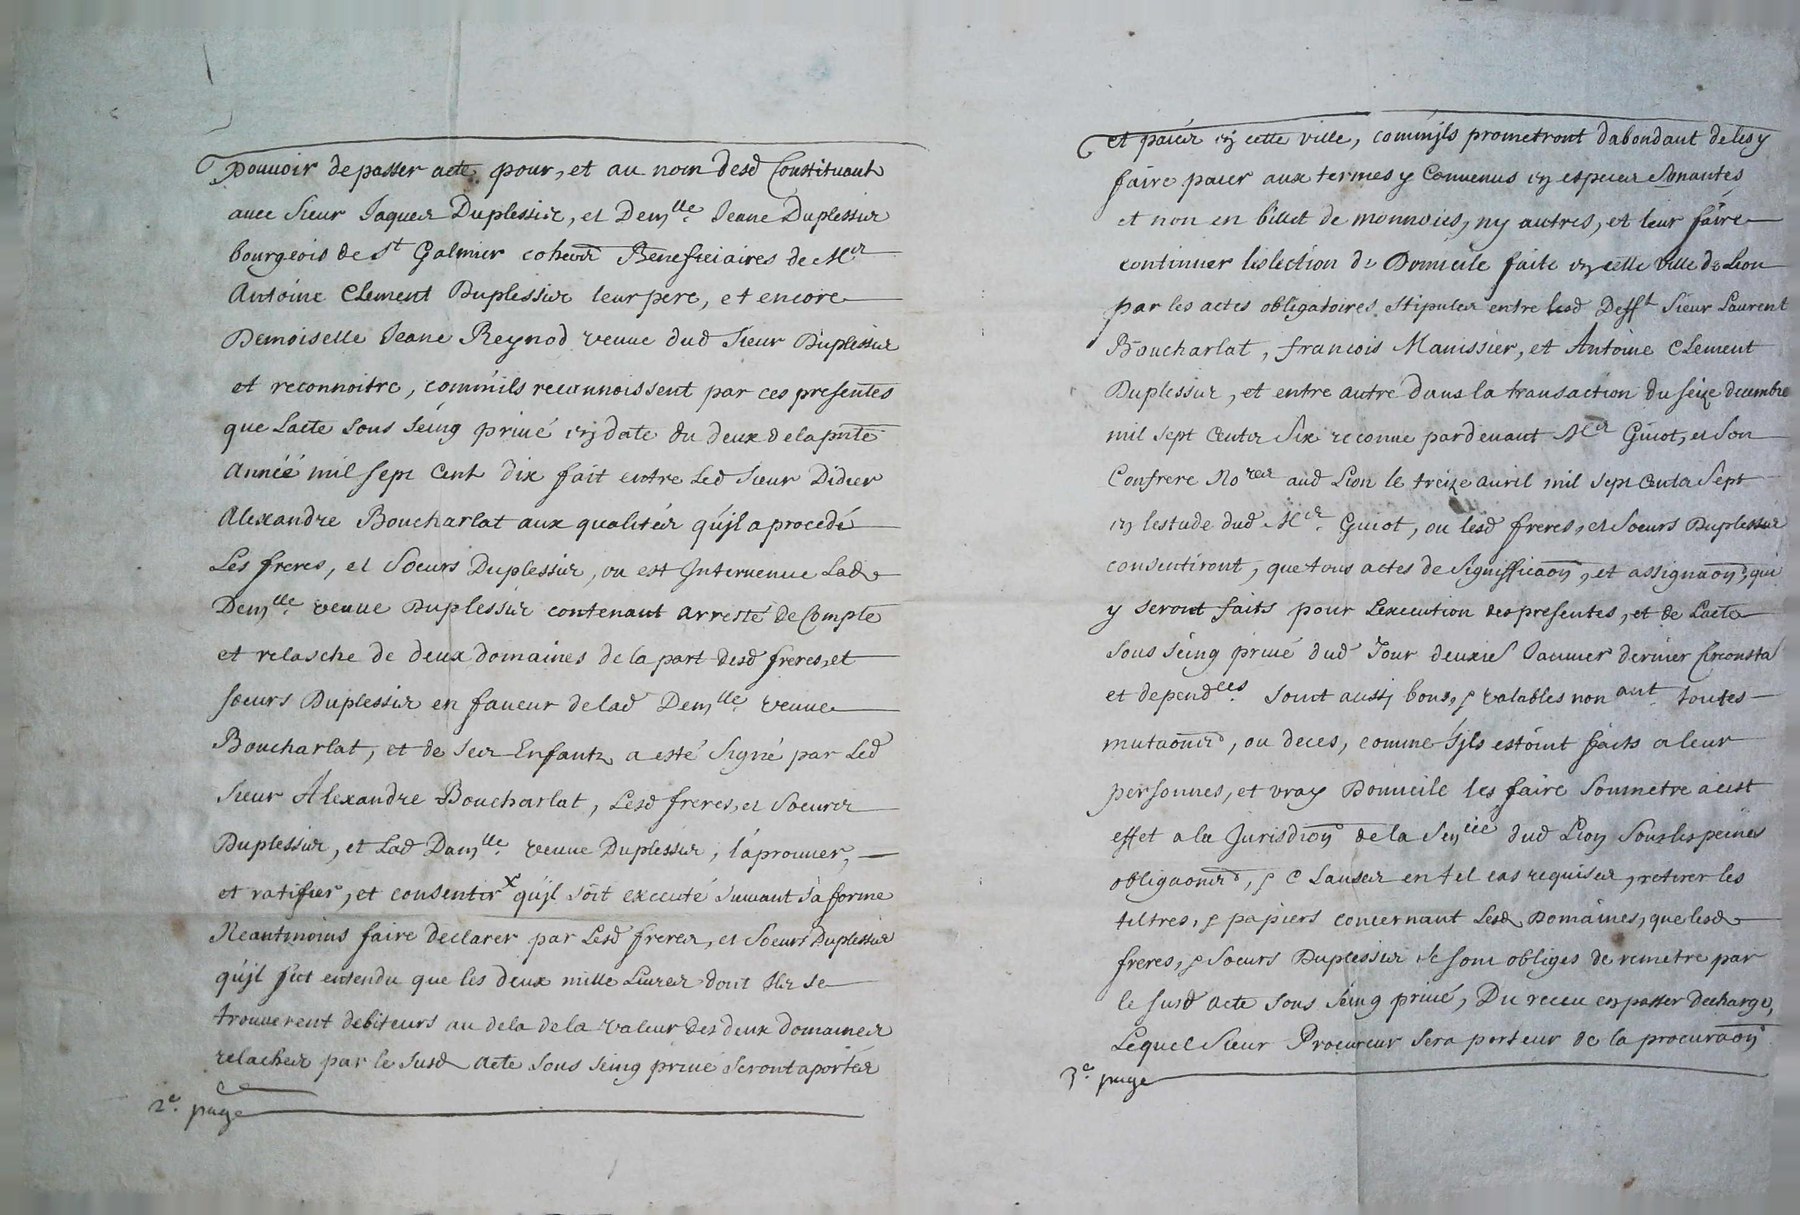 pouuoir de passer acte pour, et au nom desd Constituant
auec Sieur Jaques Duplessis, et Demlle. Jeane Duplessis
bourgeois de St Galmier coheers Beneficiaires de Mer
Antoine Clement Duplessis leur pere, et encore
Demoiselle Jeane Reynod veuue dud Sieur Duplessis
et reconnoitre, comm'ils reconnoissent par ces presentes
que Lacte sous seing priué en date du deux de la pnte
Année mil sept Cent dix fait entre Led Sieur Didier
Alexandre Boucharlat aux qualités qu'jl a procedé
Les freres, et Soeurs Duplessis, ou est Interuenue Lad
Demlle. veuue Duplessis contenant arresté de Compte
et relasche de deux domaines de la part desd freres, et
soeurs Duplessis en faueur de lad Demlle. veuue
Boucharlat, et de ses Enfants a esté Signé par Led
Sieur Alexandre Boucharlat, Lesd freres, et Soeurs
Duplessis, et Lad Damlle. veuue Duplessis, l'aprouuer,
et ratifier, et consentir x qu'jl soit executé suiuant sa forme
Neantmoins faire declarer par Lesd freres, et Soeurs Duplessis
qu'jl fut entendu que les deux mille Liures dont Ils se
trouuerent debiteurs au dela de la valeur des deux domaines
relachés par le susd acte sous seing priué seront aportés
2e. page
et paiés en cette ville, comm'jls prometront dabondant de les y
faire paier aux termes y Conuenus en especes Sonantes
et non en billet de monnoies, ny autres, et leur faire
continuer lislection de Domicile faite en cette ville de Lion
par les actes obligatoires stipules entre lesd Defft Sieur Laurent
Boucharlat, francois Manissier, et Antoine Clement
Duplessis, et entre autre dans la transaction du seize decembre
mil sept Cents Six reconue pardeuant Mer Guiot, et Son
Confrere Nores aud Lion le treize auril mil sept Cents Sept
en lestude dud Mer. Guiot, ou lesd freres, et Soeurs Duplessis
consentiront, que tous actes de Signifficaon, et assignaon, qui
y seront faits pour Lexecution des presentes, et de Lacte
sous seing priué dud Jour deuxie Januier dernier Circonsta
et dependces soint aussj bons, & valables non ant. toutes
mutaons, ou deces, comme s'jls estoint faits a leur
personnes, et vray Domicile les faire soumetre a cest
effet a la Jurisdion de la Senée dud Lion Sous les peines
obligaons, & Clauses en tel cas requises, retirer les
tiltres, & papiers concernant Lesd Domaines, que lesd
freres, & Soeurs Duplessis se sont obligés de remetre par
le susd acte sous seing priué, Du receu en passer decharge,
Lequel Sieur Procureur sera porteur de la procuraon
3e. page